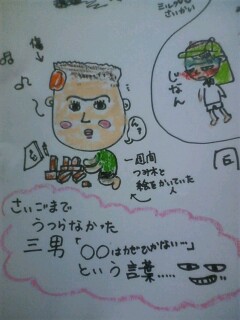 ミルクが
さいかい
俺
じなん
ん?
一週間
つみ木と
絵をかいていた
人
さいごまで
うつらなかった
三男「〇〇はカゼひかない…」
という言葉.....